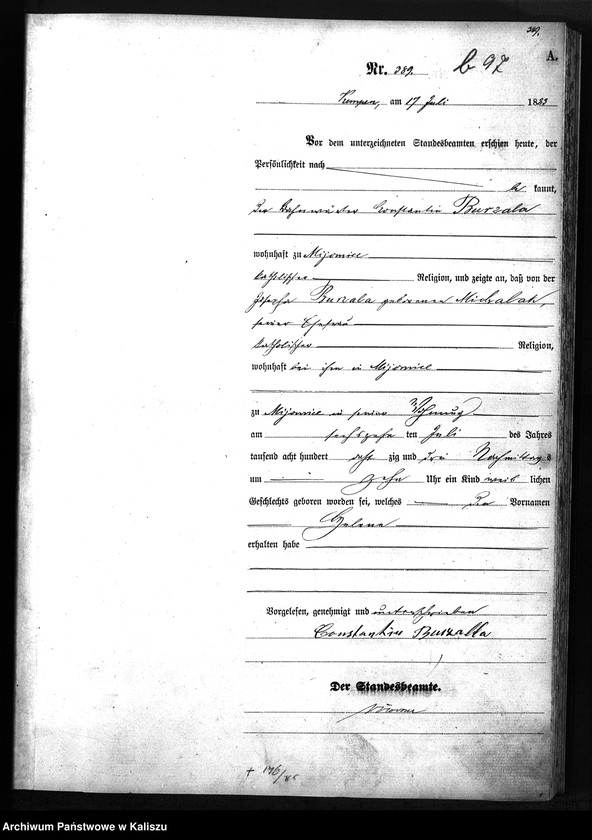 389.
A.
Nr. 389. b 97
Kempen, am 17 Juli 1883
Vor dem unterzeichneten Standesbeamten erschien heute, der
Persönlichkeit nach
be kannt,
der Bahnwärter Constantin Burzala
wohnhaft zu Mijomice
katholischer Religion, und zeigte an, daß von der
Josepha Burzala geborenen Michalak,
seiner Ehefrau
katholischer Religion,
wohnhaft bei ihm in Mijomice
zu Mijomice in seiner Wohnung
am sechszehn ten Juli des Jahres
tausend acht hundert acht zig und drei Nachmittags
um zehn Uhr ein Kind weib lichen
Geschlechts geboren worden sei, welches den Vornamen
Helene
erhalten habe
Vorgelesen, genehmigt und unterschrieben
Constantin Burzalla
Der Standesbeamte.
+ 176/85
Archiwum Państwowe w Kaliszu